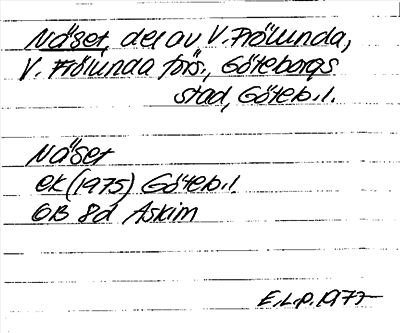 Näset, del av V. Frölunda,
V. Frölunda förs., Göteborgs
stad, Göteb. l.
Näset
ek (1975) Göteb. l.
GB 8d Askim
E.L.p. 1977